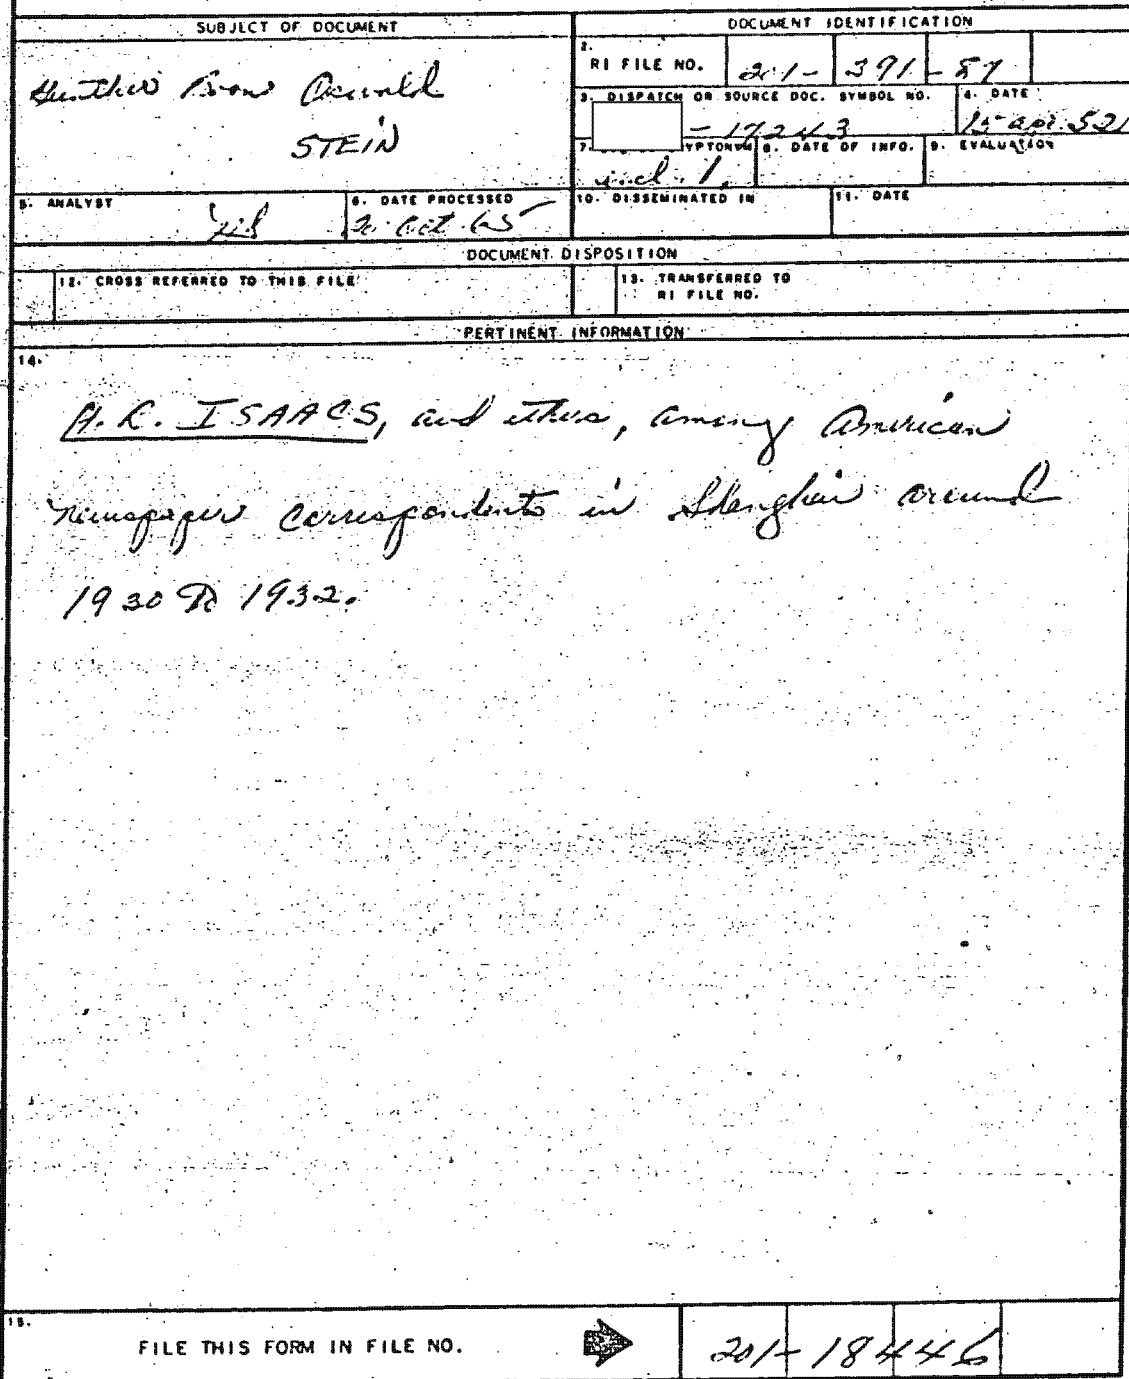 SUBJECT OF DOCUMENT
DOCUMENT IDENTIFICATION
2.
RI FILE NO. 201- 391-87
3. DISPATCH OR SOURCE DOC. SYMBOL NO.
-17243
4. DATE
15 apr 52
STEIN
7. YPTONYM
incl. 1.
8. DATE OF INFO.
9. EVALUATION
5. ANALYST
6. DATE PROCESSED
20 Oct 65
10. DISSEMINATED IN
11. DATE
DOCUMENT DISPOSITION
12. CROSS REFERRED TO THIS FILE
13. TRANSFERRED TO
RI FILE NO.
PERTINENT INFORMATION
14.
H.R. ISAACS, and others, among American
newspaper correspondents in Shanghai around
1930 to 1932.
15.
FILE THIS FORM IN FILE NO.
201-18446